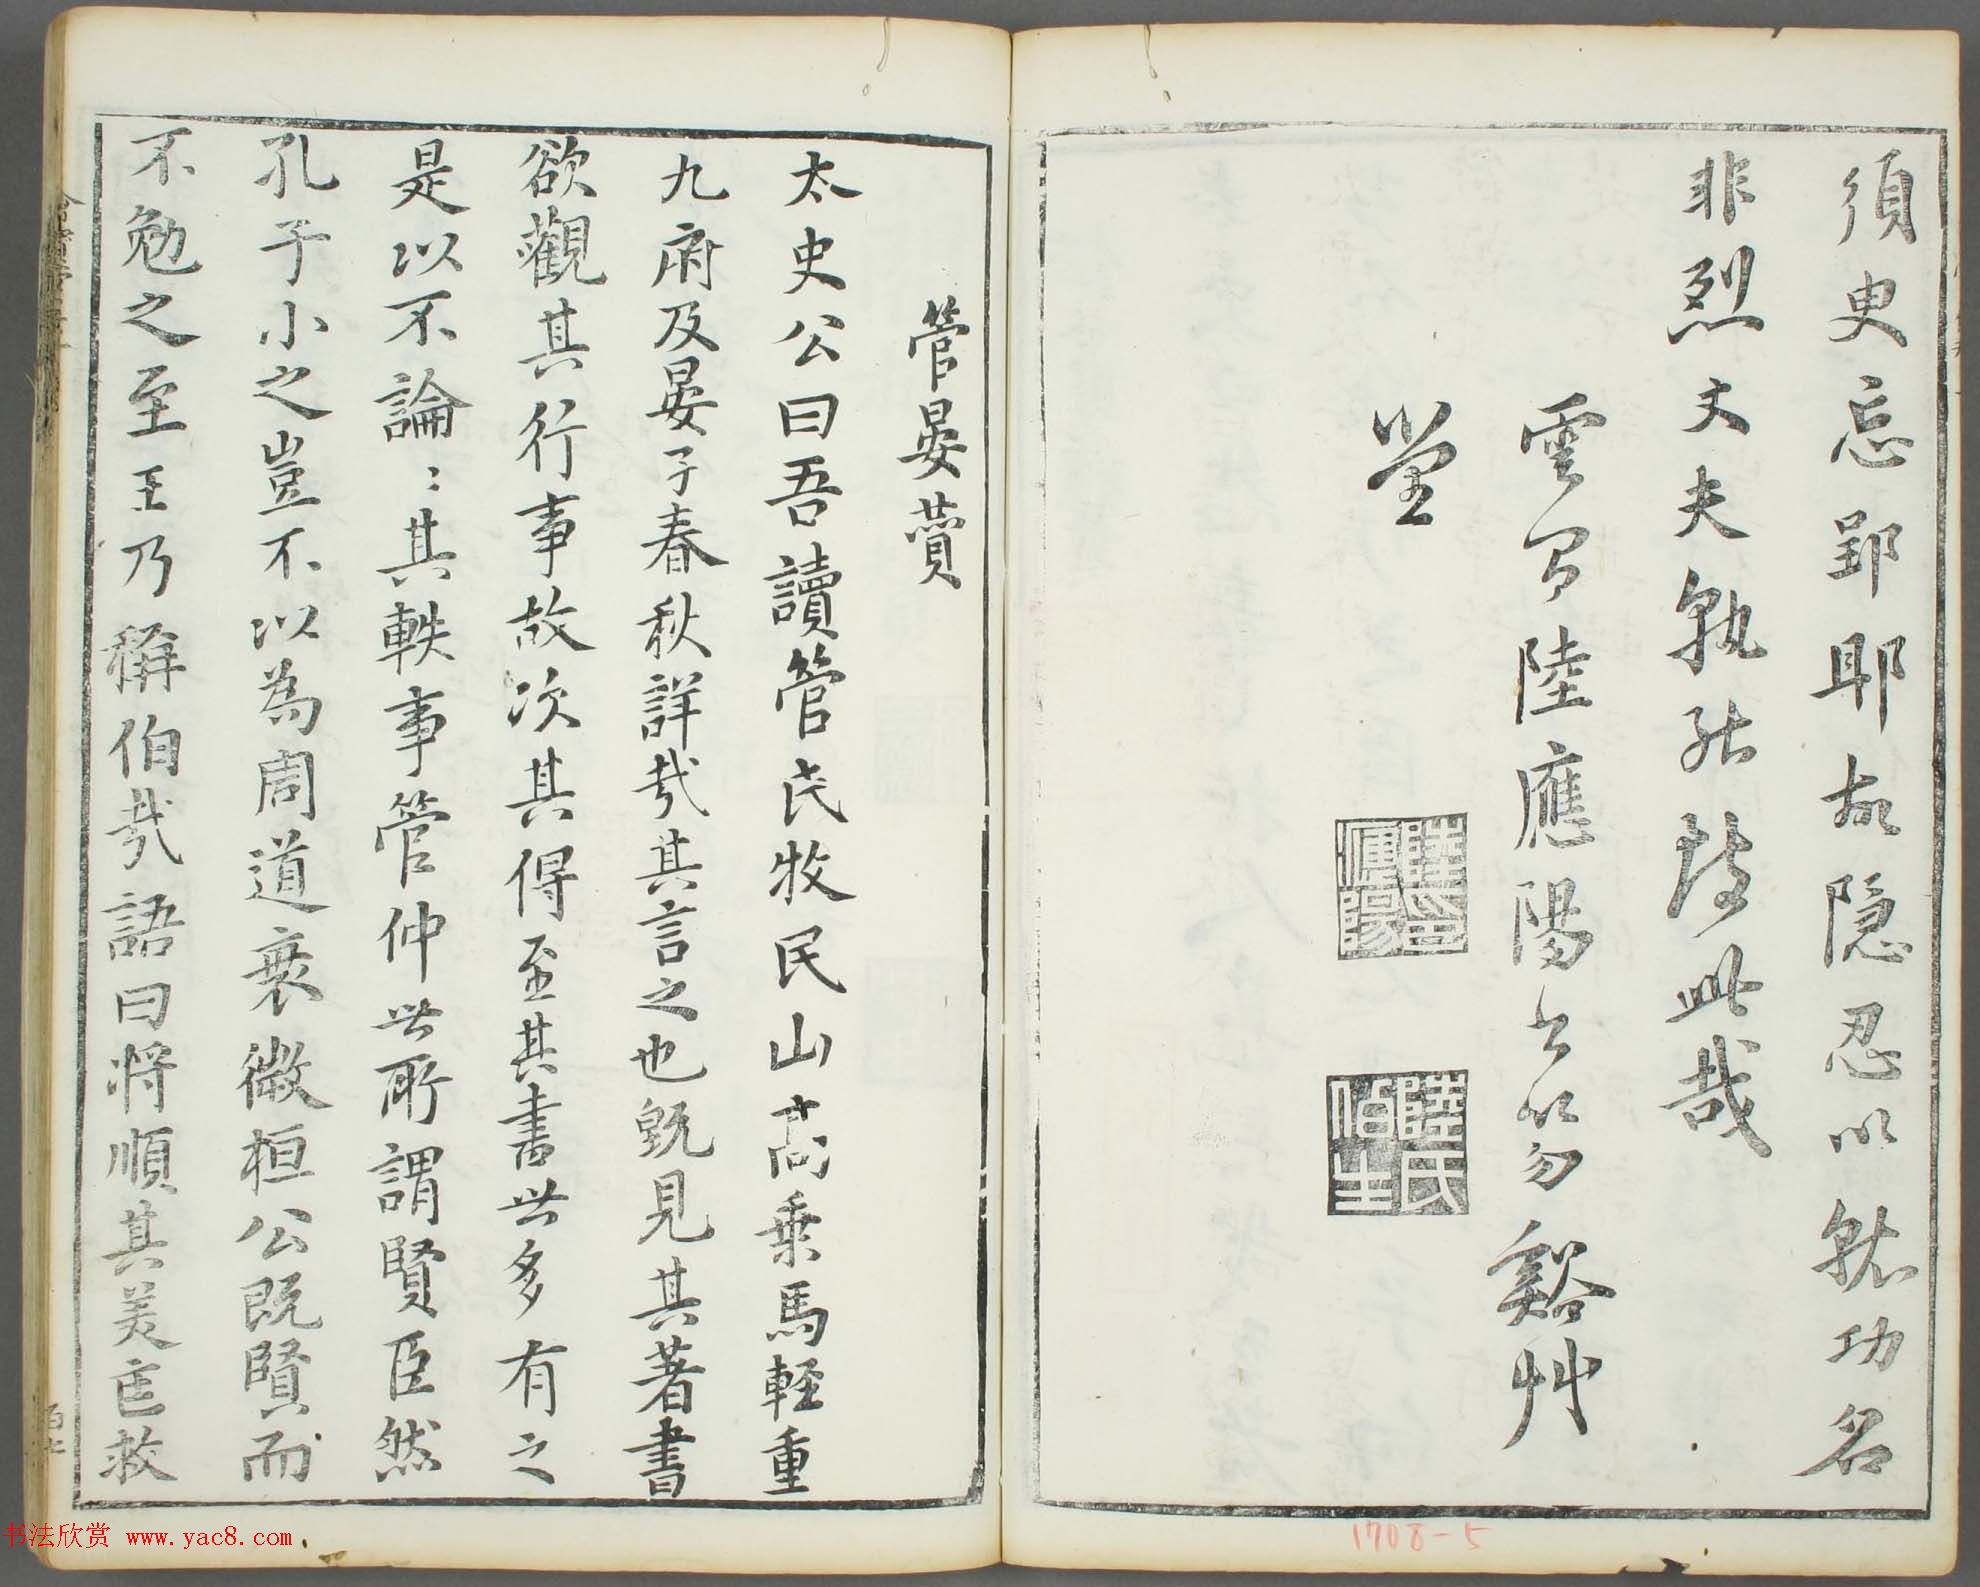 須臾忘郢耶故隱忍以就功名
非烈丈夫孰能致此哉
雲間陸應陽書於勿谿艸
堂
陸印應陽
陸氏伯生
管晏贊
太史公曰吾讀管氏牧民山高乗馬輕重
九府及晏子春秋詳哉其言之也既見其著書
欲觀其行事故次其得至其書世多有之
是以不論〻其軼事管仲世所謂賢臣然
孔子小之豈不以為周道衰微桓公既賢而
不勉之至王乃稱伯哉語曰將順其美匡救
1708-5
书法欣赏 www.yac8.com